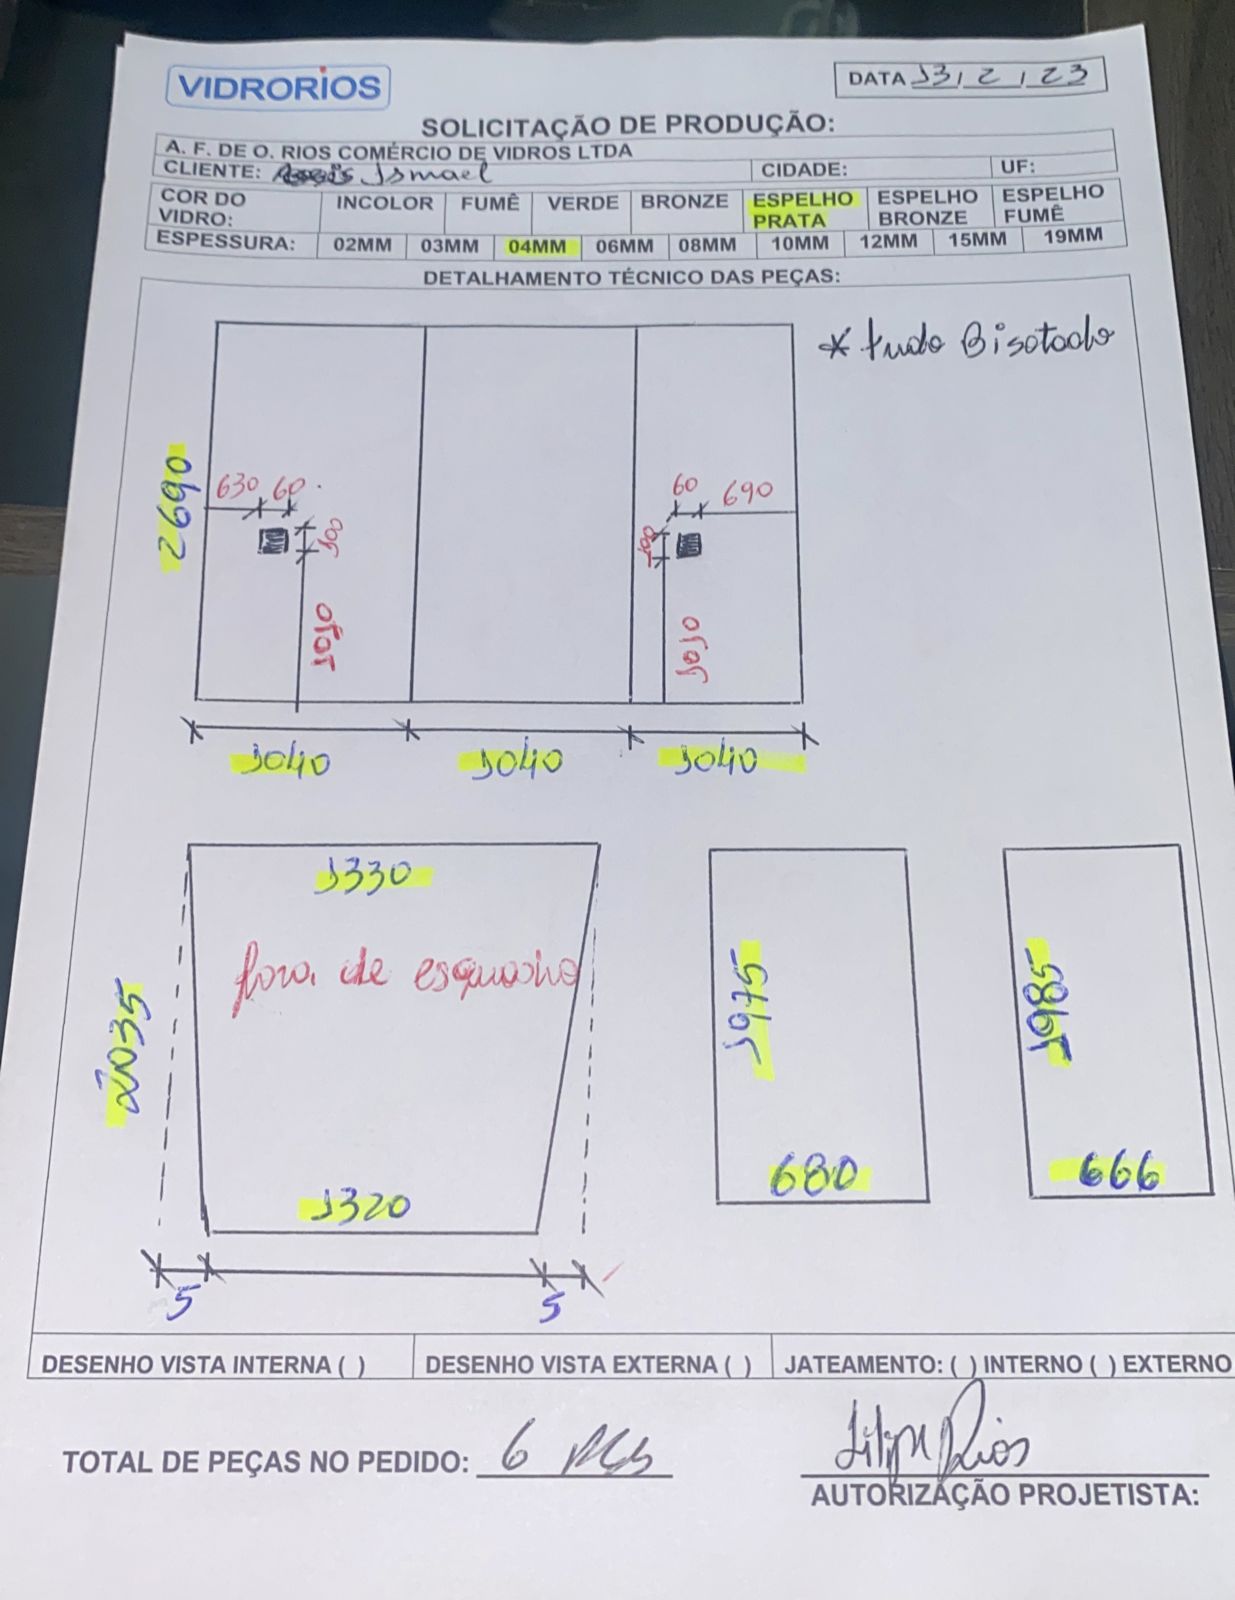 VIDRORIOS
DATA 13/2/23
SOLICITAÇÃO DE PRODUÇÃO:
A. F. DE O. RIOS COMÉRCIO DE VIDROS LTDA
CLIENTE: Ismael CIDADE: UF:
COR DO VIDRO: INCOLOR FUMÊ VERDE BRONZE ESPELHO PRATA ESPELHO BRONZE ESPELHO FUMÊ
ESPESSURA: 02MM 03MM 04MM 06MM 08MM 10MM 12MM 15MM 19MM
DETALHAMENTO TÉCNICO DAS PEÇAS:
* tudo Bisotado
2690
630 60
100
1010
60 690
100
1010
1040 1040 1040
1330
fora de esquadro
2035
1320
5 5
1975
680
1985
666
DESENHO VISTA INTERNA ( ) DESENHO VISTA EXTERNA ( ) JATEAMENTO: ( ) INTERNO ( ) EXTERNO
TOTAL DE PEÇAS NO PEDIDO: 6 PÇS
Filipe Rios
AUTORIZAÇÃO PROJETISTA: